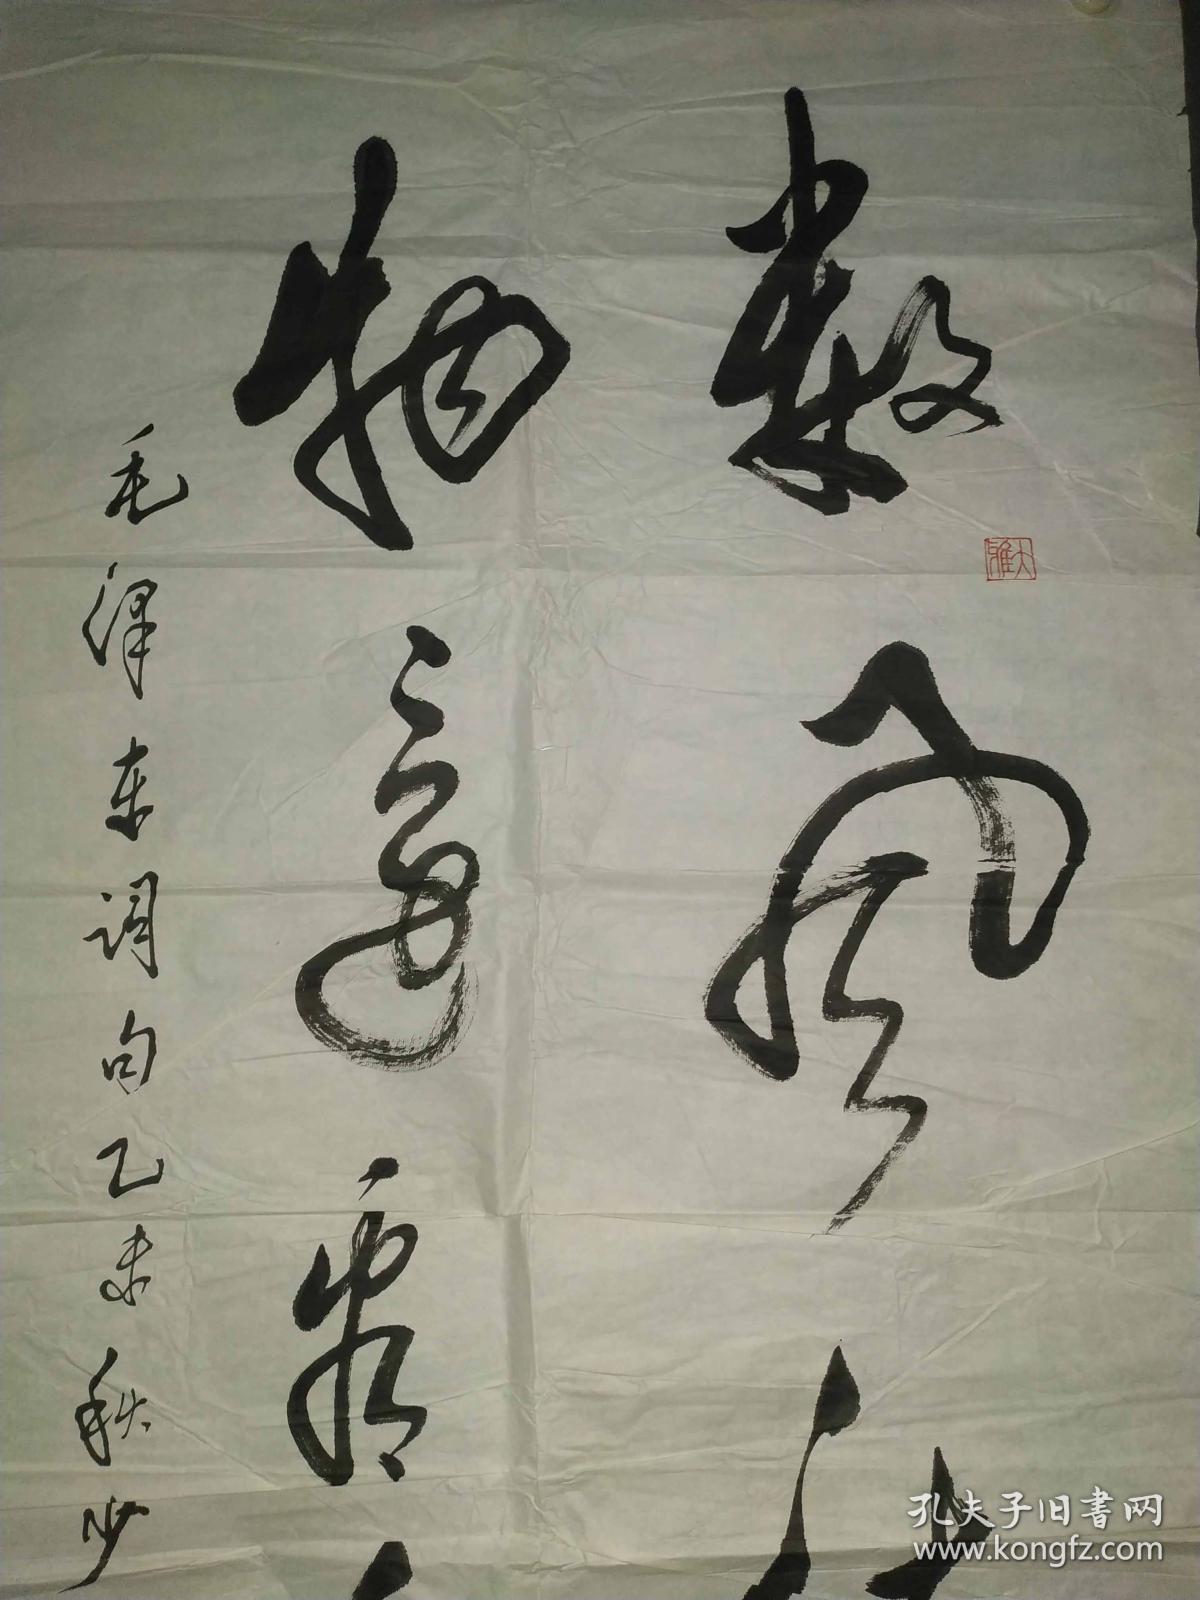 数风
物还看
毛泽东词句乙未秋少
大雅
孔夫子旧书网
www.kongfz.com